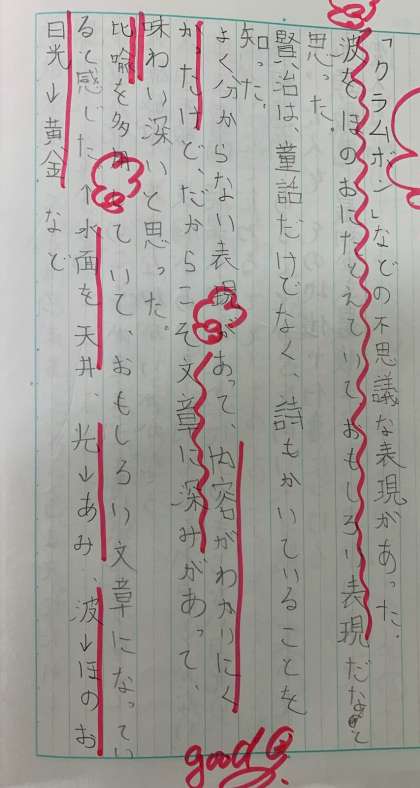 「クラムボン」などの不思議な表現があった。
波をほのおにたとえていておもしろい表現だなと
思った。
賢治は、童話だけでなく、詩もかいていることを
知った。
よく分からない表現があって、内容がわかりにく
かったけど、だからこそ文章に深みがあって、
味わい深いと思った。
比喩を多用していて、おもしろい文章になってい
ると感じた。↑水面を天井、光→あみ、波→ほのお
日光→黄金 など
good